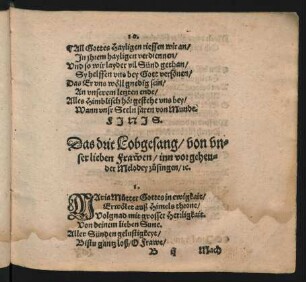 10.
All Gottes Hayligen rieffen wir an/
In jhrem hayligen verdiennen/
Vnd so wir layder vil Sünd gethan/
Sy helffen vns bey Gott versönen/
Das Er vns wöll gnedig sein/
An vnserem letzten ende/
Alles Himblisch hör gestehe vns bey/
Wann vnse Seeln faren von Munde.
FINIS.
Das drit Lobgesang/ von vn-
ser lieben Frawen/ inn vorgehen-
der Melodey zůsingen/ ꝛc.
1.
Maria Můtter Gottes in ewigkait/
Erwölet auß Himels throne/
Volgnad mit grosser Herrligkait
Von deinem lieben Sune.
Aller Sünden
Bistu gantz loß/ O Frawe/
B
Mach